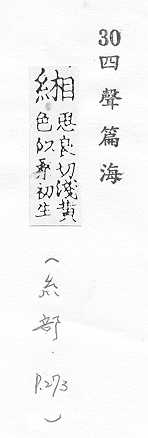 30四聲篇海
緗
思良切淺黃
色似桒初生
(糸部．P.273)